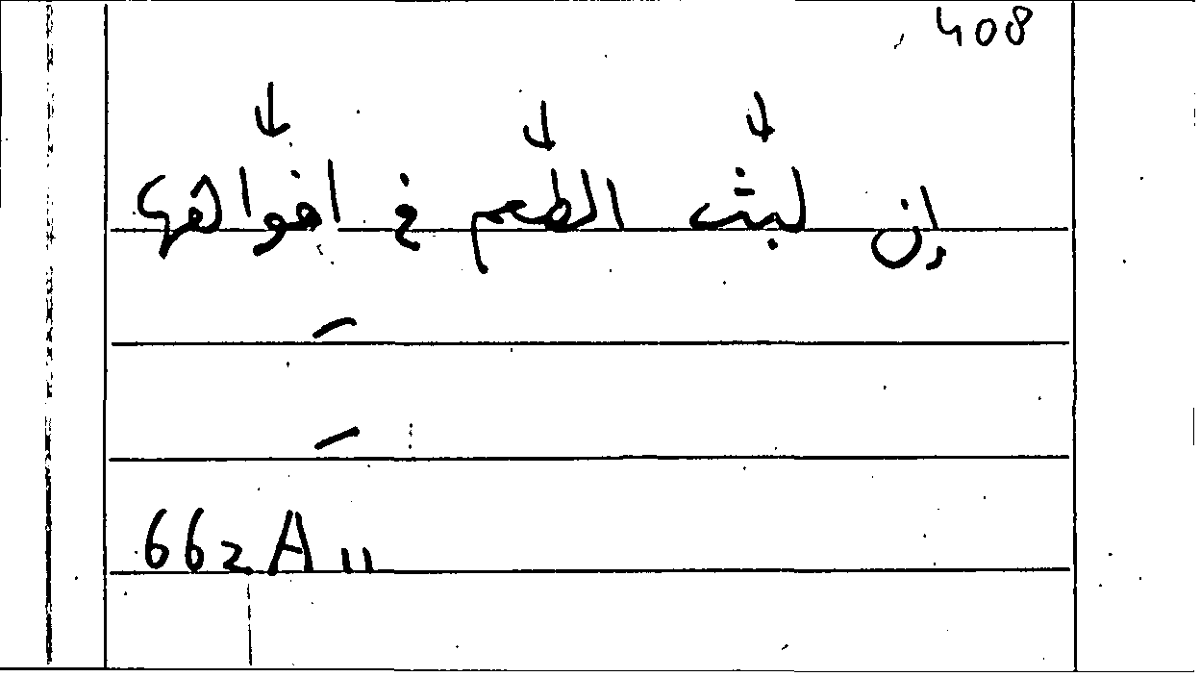 408
إن لبث الطعم في افواهها
662A11